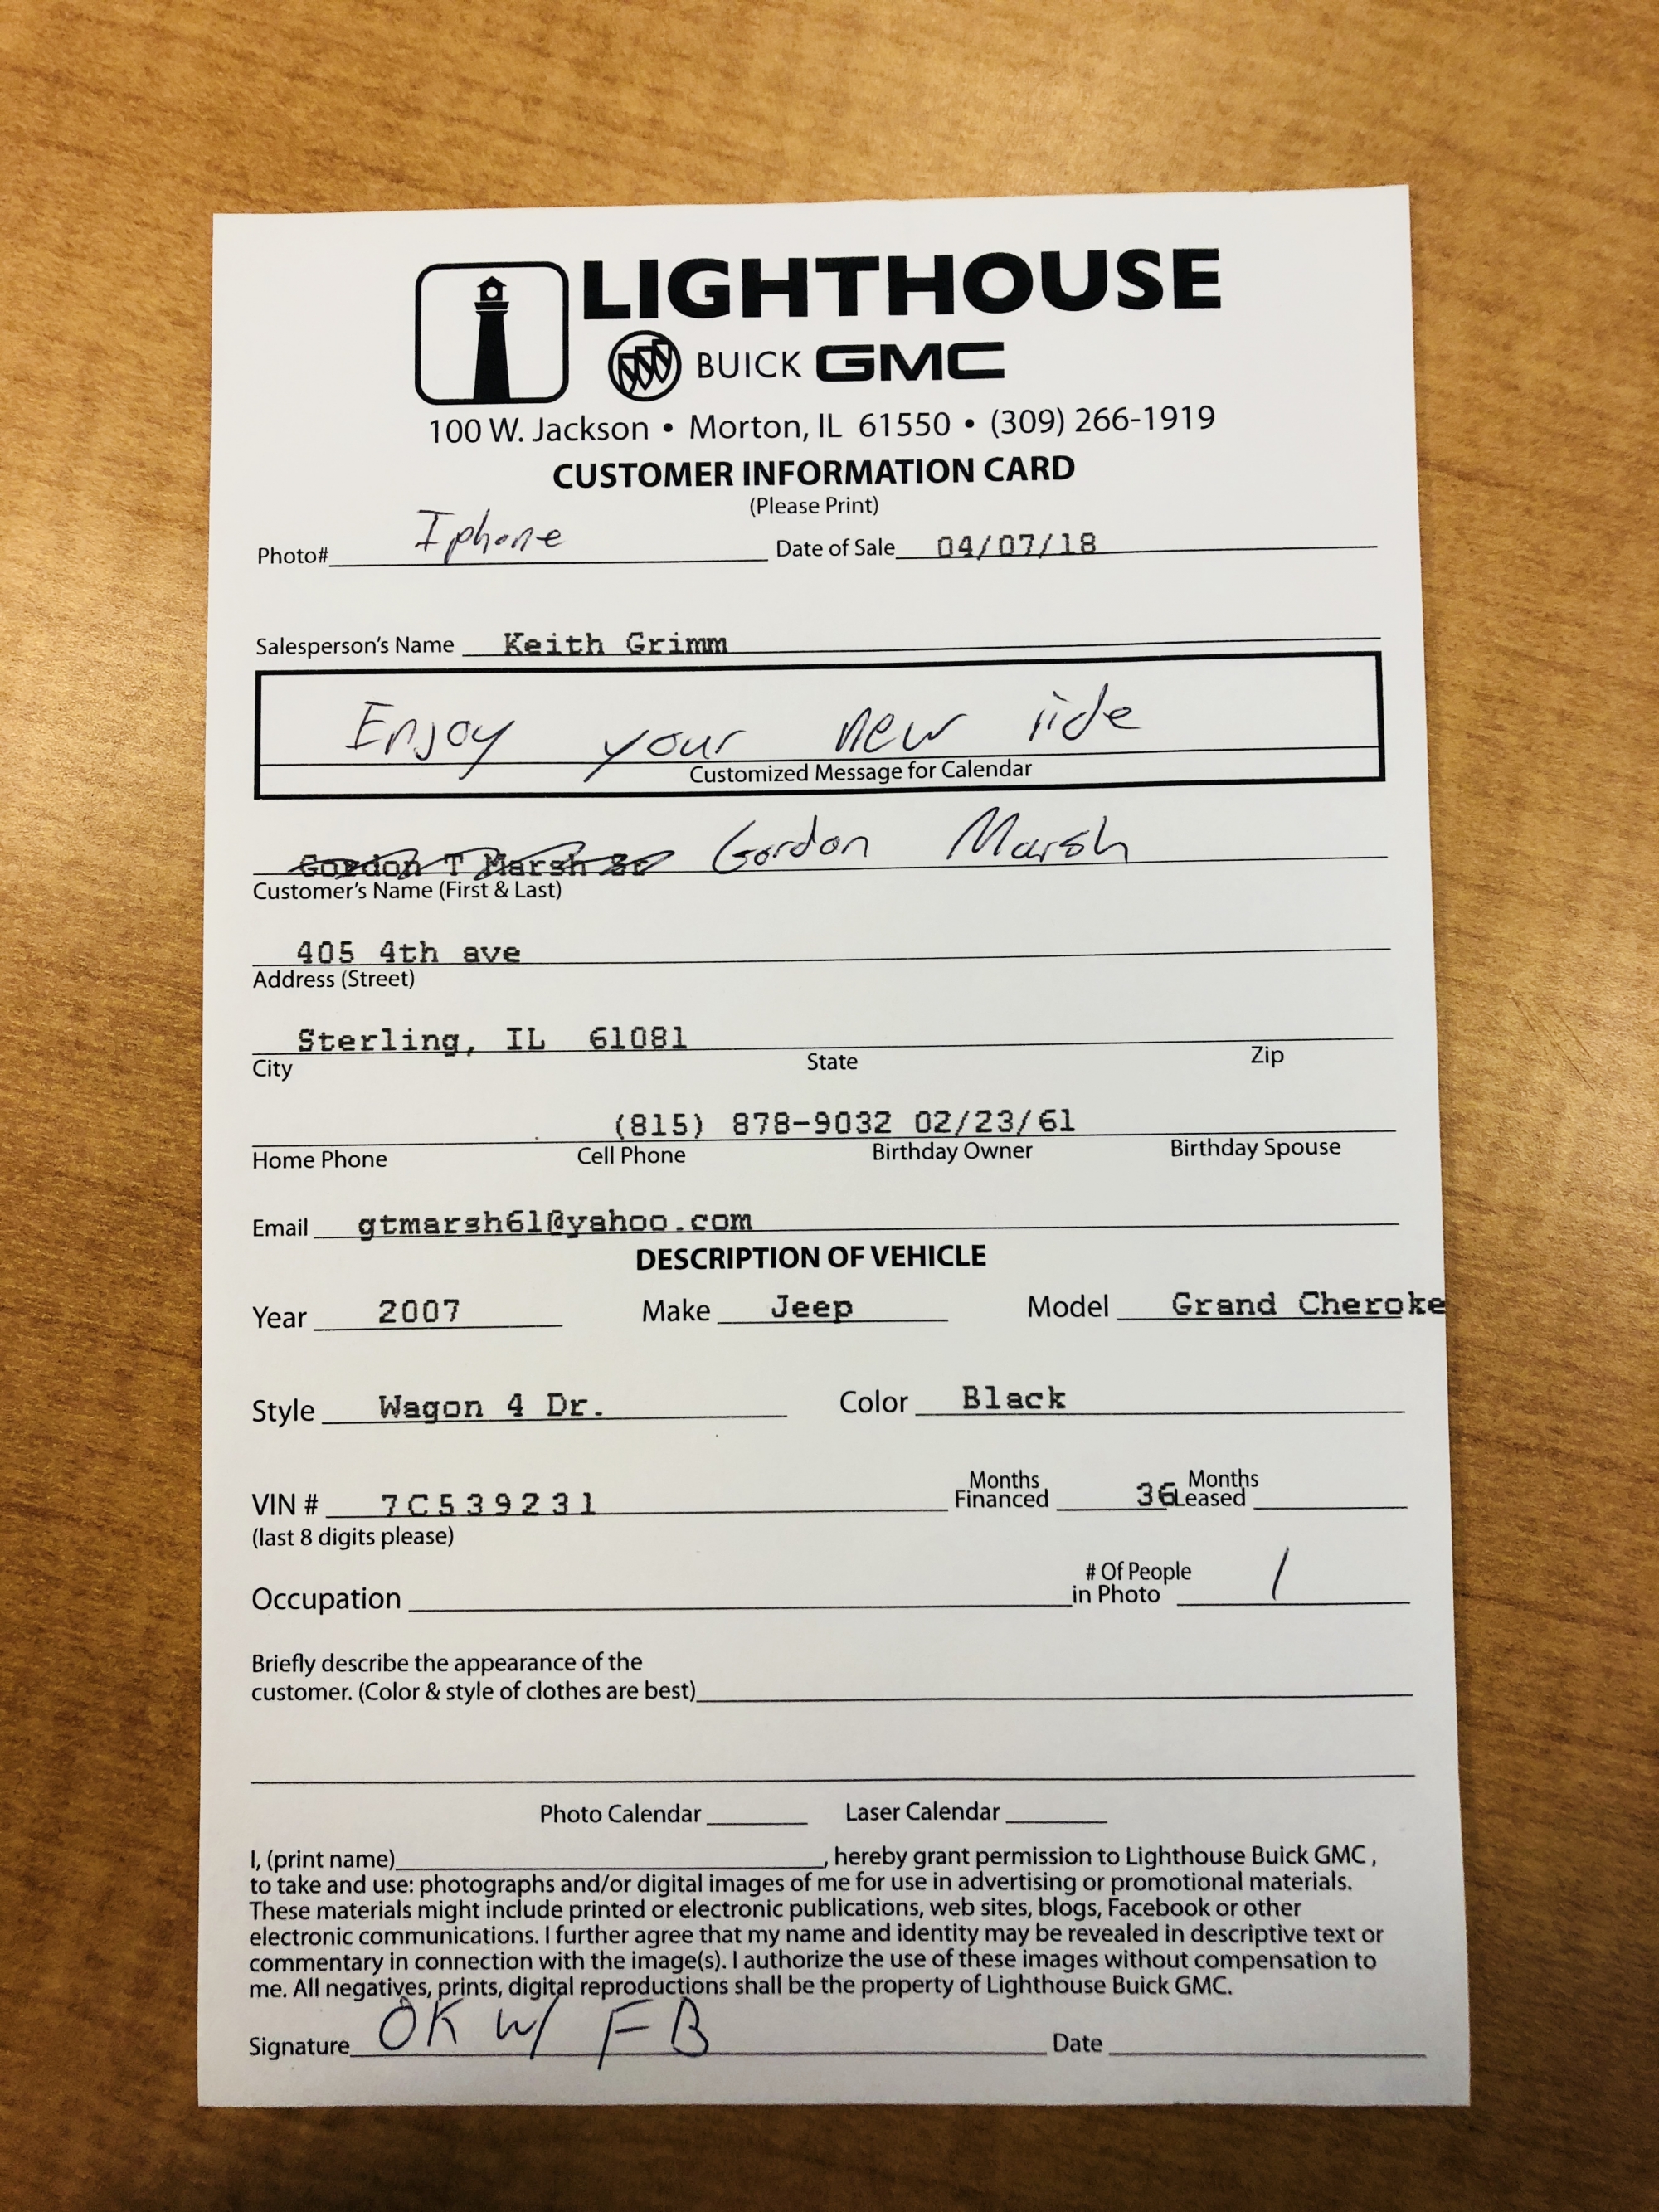 LIGHTHOUSE
BUICK GMC
100 W. Jackson • Morton, IL 61550 • (309) 266-1919
CUSTOMER INFORMATION CARD
(Please Print)
Photo# Iphone Date of Sale 04/07/18
Salesperson's Name Keith Grimm
Enjoy your new ride
Customized Message for Calendar
Gordon T Marsh Sr Gordon Marsh
Customer's Name (First & Last)
405 4th ave
Address (Street)
Sterling, IL 61081
City State Zip
(815) 878-9032 02/23/61
Home Phone Cell Phone Birthday Owner Birthday Spouse
Email gtmarsh61@yahoo.com
DESCRIPTION OF VEHICLE
Year 2007 Make Jeep Model Grand Cheroke
Style Wagon 4 Dr. Color Black
Months Months
VIN # 7C539231 Financed 36 Leased
(last 8 digits please)
# Of People
Occupation in Photo 1
Briefly describe the appearance of the
customer. (Color & style of clothes are best)
Photo Calendar Laser Calendar
I, (print name), hereby grant permission to Lighthouse Buick GMC ,
to take and use: photographs and/or digital images of me for use in advertising or promotional materials.
These materials might include printed or electronic publications, web sites, blogs, Facebook or other
electronic communications. I further agree that my name and identity may be revealed in descriptive text or
commentary in connection with the image(s). I authorize the use of these images without compensation to
me. All negatives, prints, digital reproductions shall be the property of Lighthouse Buick GMC.
Signature OK w/ FB Date